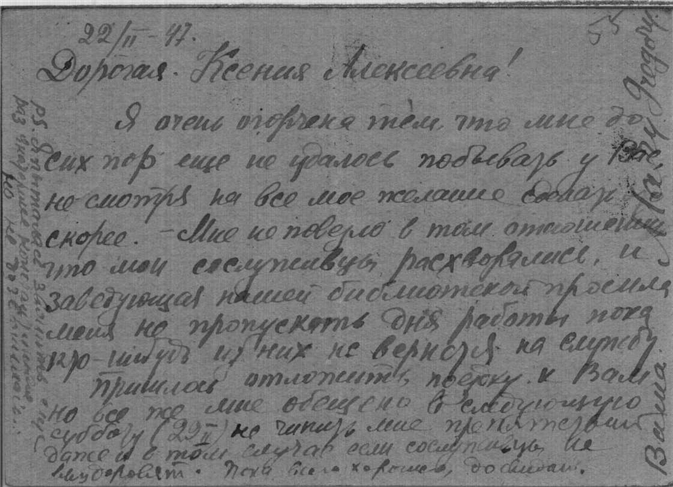 22/II-47.
Дорогая Ксения Алексеевна!
Я очень огорчена тем, что мне до
сих пор еще не удалось побывать у Вас
не смотря на все мое желание сделать
скорее. - Мне не повезло в том отношении
что мои сослуживцы расхворались, и
заведующая нашей библиотекой просила
меня не пропускать дня работы пока
кто-нибудь из них не вернется на службу.
Пришлось отложить поездку к Вам
но все же мне обещено в следующую
субботу (29/II) не чинить мне препятствий
даже и в том случае если сослуживцы не
выздоровят. Пока всего хорошего, до свидан.
Ваша
P.S.
раз
55